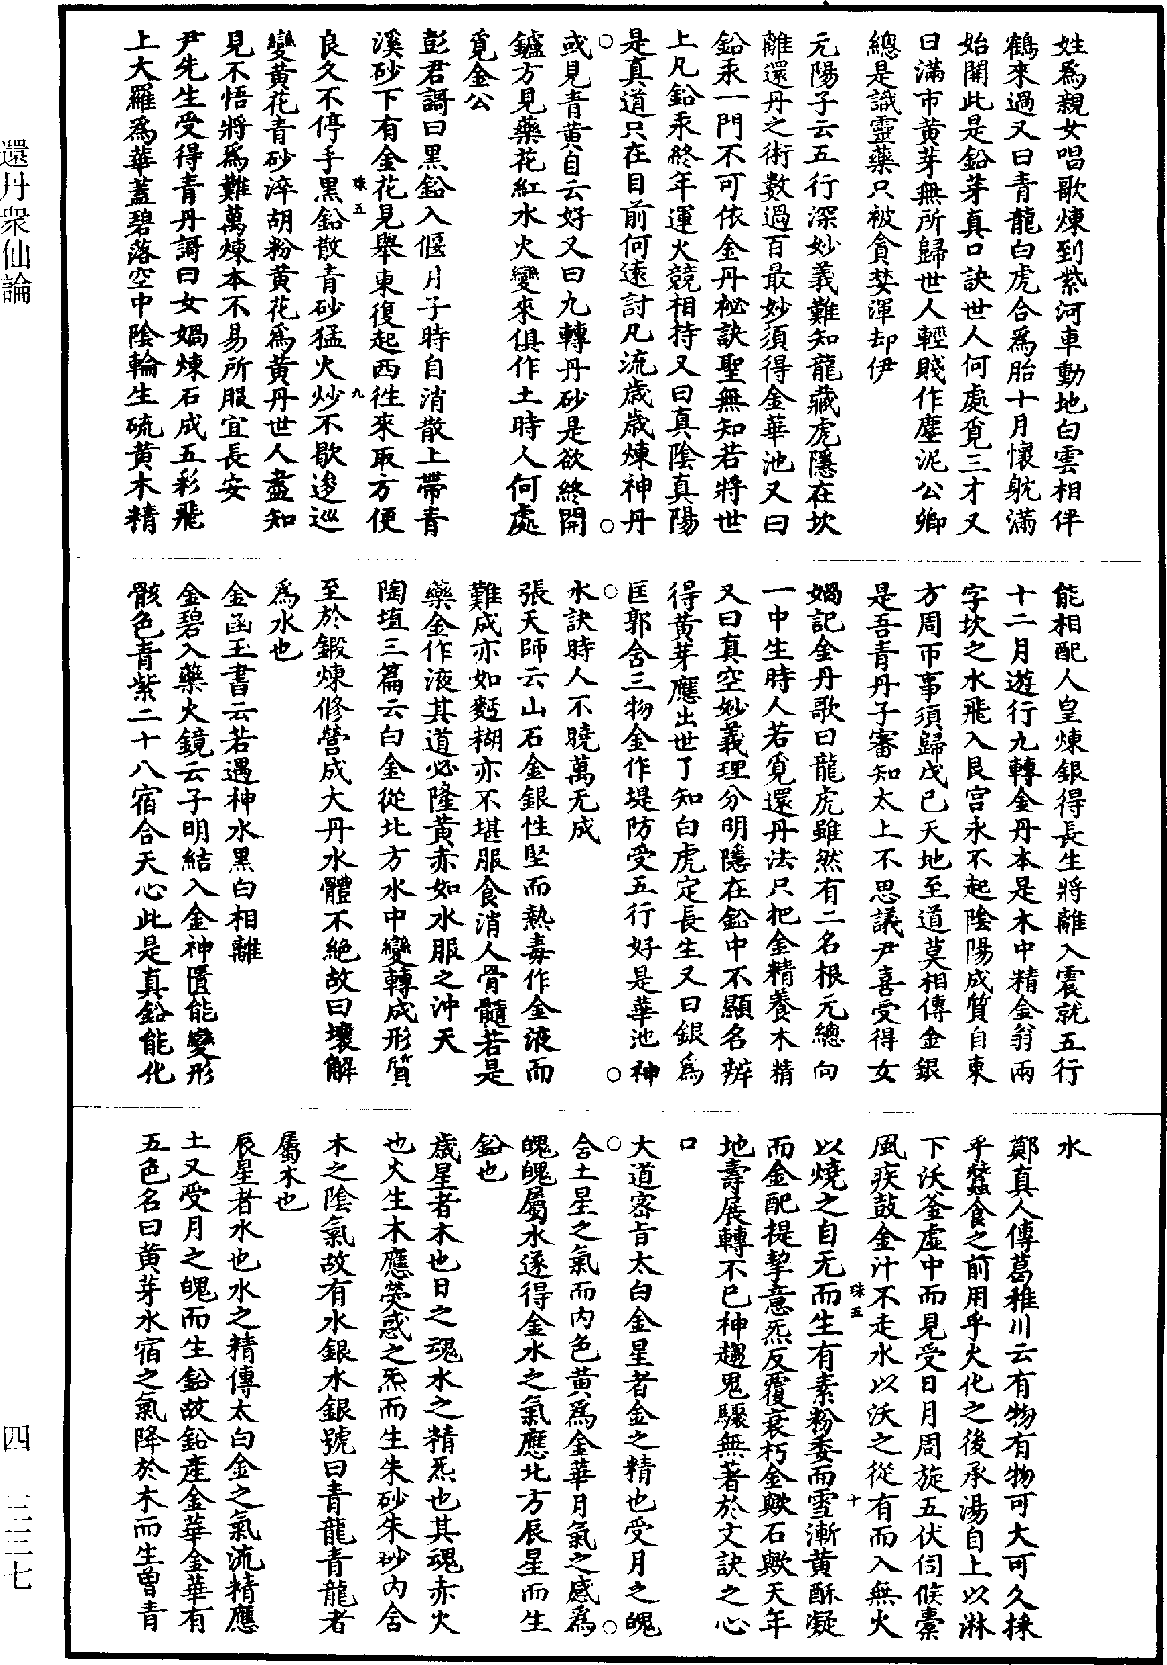 姹爲親女唱歌煉到紫河車動地白雲相伴
鶴來過又曰青龍白虎合爲胎十月懷躭滿
始開此是鉛芽真口訣世人何處覓三才又
曰滿市黄芽無所歸世人輕賤作塵泥公卿
總是識靈藥只被貪婪渾却伊
元陽子云五行深妙義難知龍藏虎隱在坎
離還丹之術數過百最妙須得金華池又曰
鉛汞一門不可依金丹祕訣聖無知若將世
上凡鉛汞終年運火競相持又曰真陰真陽
是真道只在目前何遠討凡流歲歲煉神丹
或見青黄自云好又曰九轉丹砂是欲終開
鑪方見藥花紅水火變來俱作土時人何處
覓金公
彭君謌曰黑鉛入偃月子時自消散上帶青
溪砂下有金花見舉東復起西徃來取方便
珠五 九
良久不停手黑鉛散青砂猛火炒不歇逡巡
變黄花青砂淬胡粉黄花爲黄丹世人盡知
見不悟將爲難萬煉本不易所服宜長安
尹先生受得青丹謌曰女媧煉石成五彩飛
上大羅爲華蓋碧落空中陰輪生硫黄木精
能相配人皇煉銀得長生將離入震就五行
十二月遊行九轉金丹本是木中精金翁兩
字坎之水飛入艮宫永不起陰陽成質自東
方周帀事須歸戊已天地至道莫相傳金銀
是吾青丹子審知太上不思議尹喜受得女
媧記金丹歌曰龍虎雖然有二名根元總向
一中生時人若覓還丹法只把金精養木精
又曰真空妙義理分明隱在鉛中不顯名辨
得黄芽應出世了知白虎定長生又曰銀爲
匡郭含三物金作堤防受五行好是華池神
水訣時人不曉萬无成
張天師云山石金銀性堅而熱毒作金液而
難成亦如麪糊亦不堪服食消人骨髓若是
藥金作液其道必隆黄赤如水服之沖天
陶埴三篇云白金從北方水中變轉成形質
至於鍛煉修營成大丹水體不絶故曰壞解
爲水也
金函玉書云若遇神水黑白相離
金碧入藥火鏡云子明結入金神匱能變形
骸色青紫二十八宿合天心此是真鉛能化
水
鄭真人傳葛稚川云有物有物可大可久採
乎蠶食之前用乎火化之後承湯自上以淋
下沃釜虚中而見受日月周旋五伏伺候橐
風疾鼓金汁不走水以沃之從有而入無火
珠五 十
以燒之自无而生有素粉委而雪漸黄酥凝
而金配提挈意炁反覆衰朽金歟石歟天年
地壽展轉不已神趨鬼驟無著於文訣之心
口
大道密旨太白金星者金之精也受月之魄
含土星之氣而内色黄爲金華月氣之感爲
魄魄屬水遂得金水之氣應北方辰星而生
鉛也
歲星者木也日之魂水之精炁也其魂赤火
也火生木應熒惑之炁而生朱砂朱砂内含
木之陰氣故有水銀水銀號曰青龍青龍者
屬木也
辰星者水也水之精傳太白金之氣流精應
土又受月之魄而生鉛故鉛產金華金華有
五色名曰黄芽水宿之氣降於木而生曾青
還丹衆仙論
四
三三七